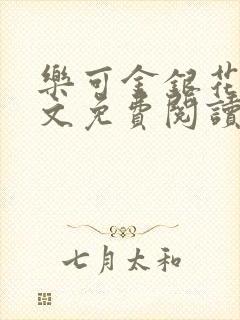 樂可金銀花
文免費閱讀
七月太和